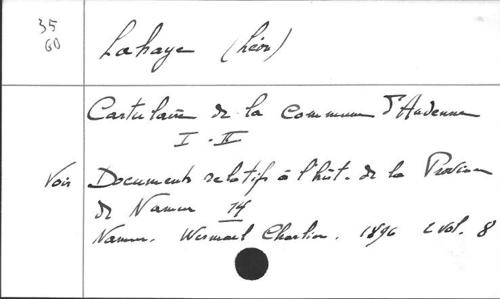 35
60
Lahaye (Léon)
Cartulaire de la Commune d'Andenne
I - II
Voir Documents relatifs à l'hist. de la Province
de Namur
Namur. Wesmael Charlier. 1896 2 vol. 8